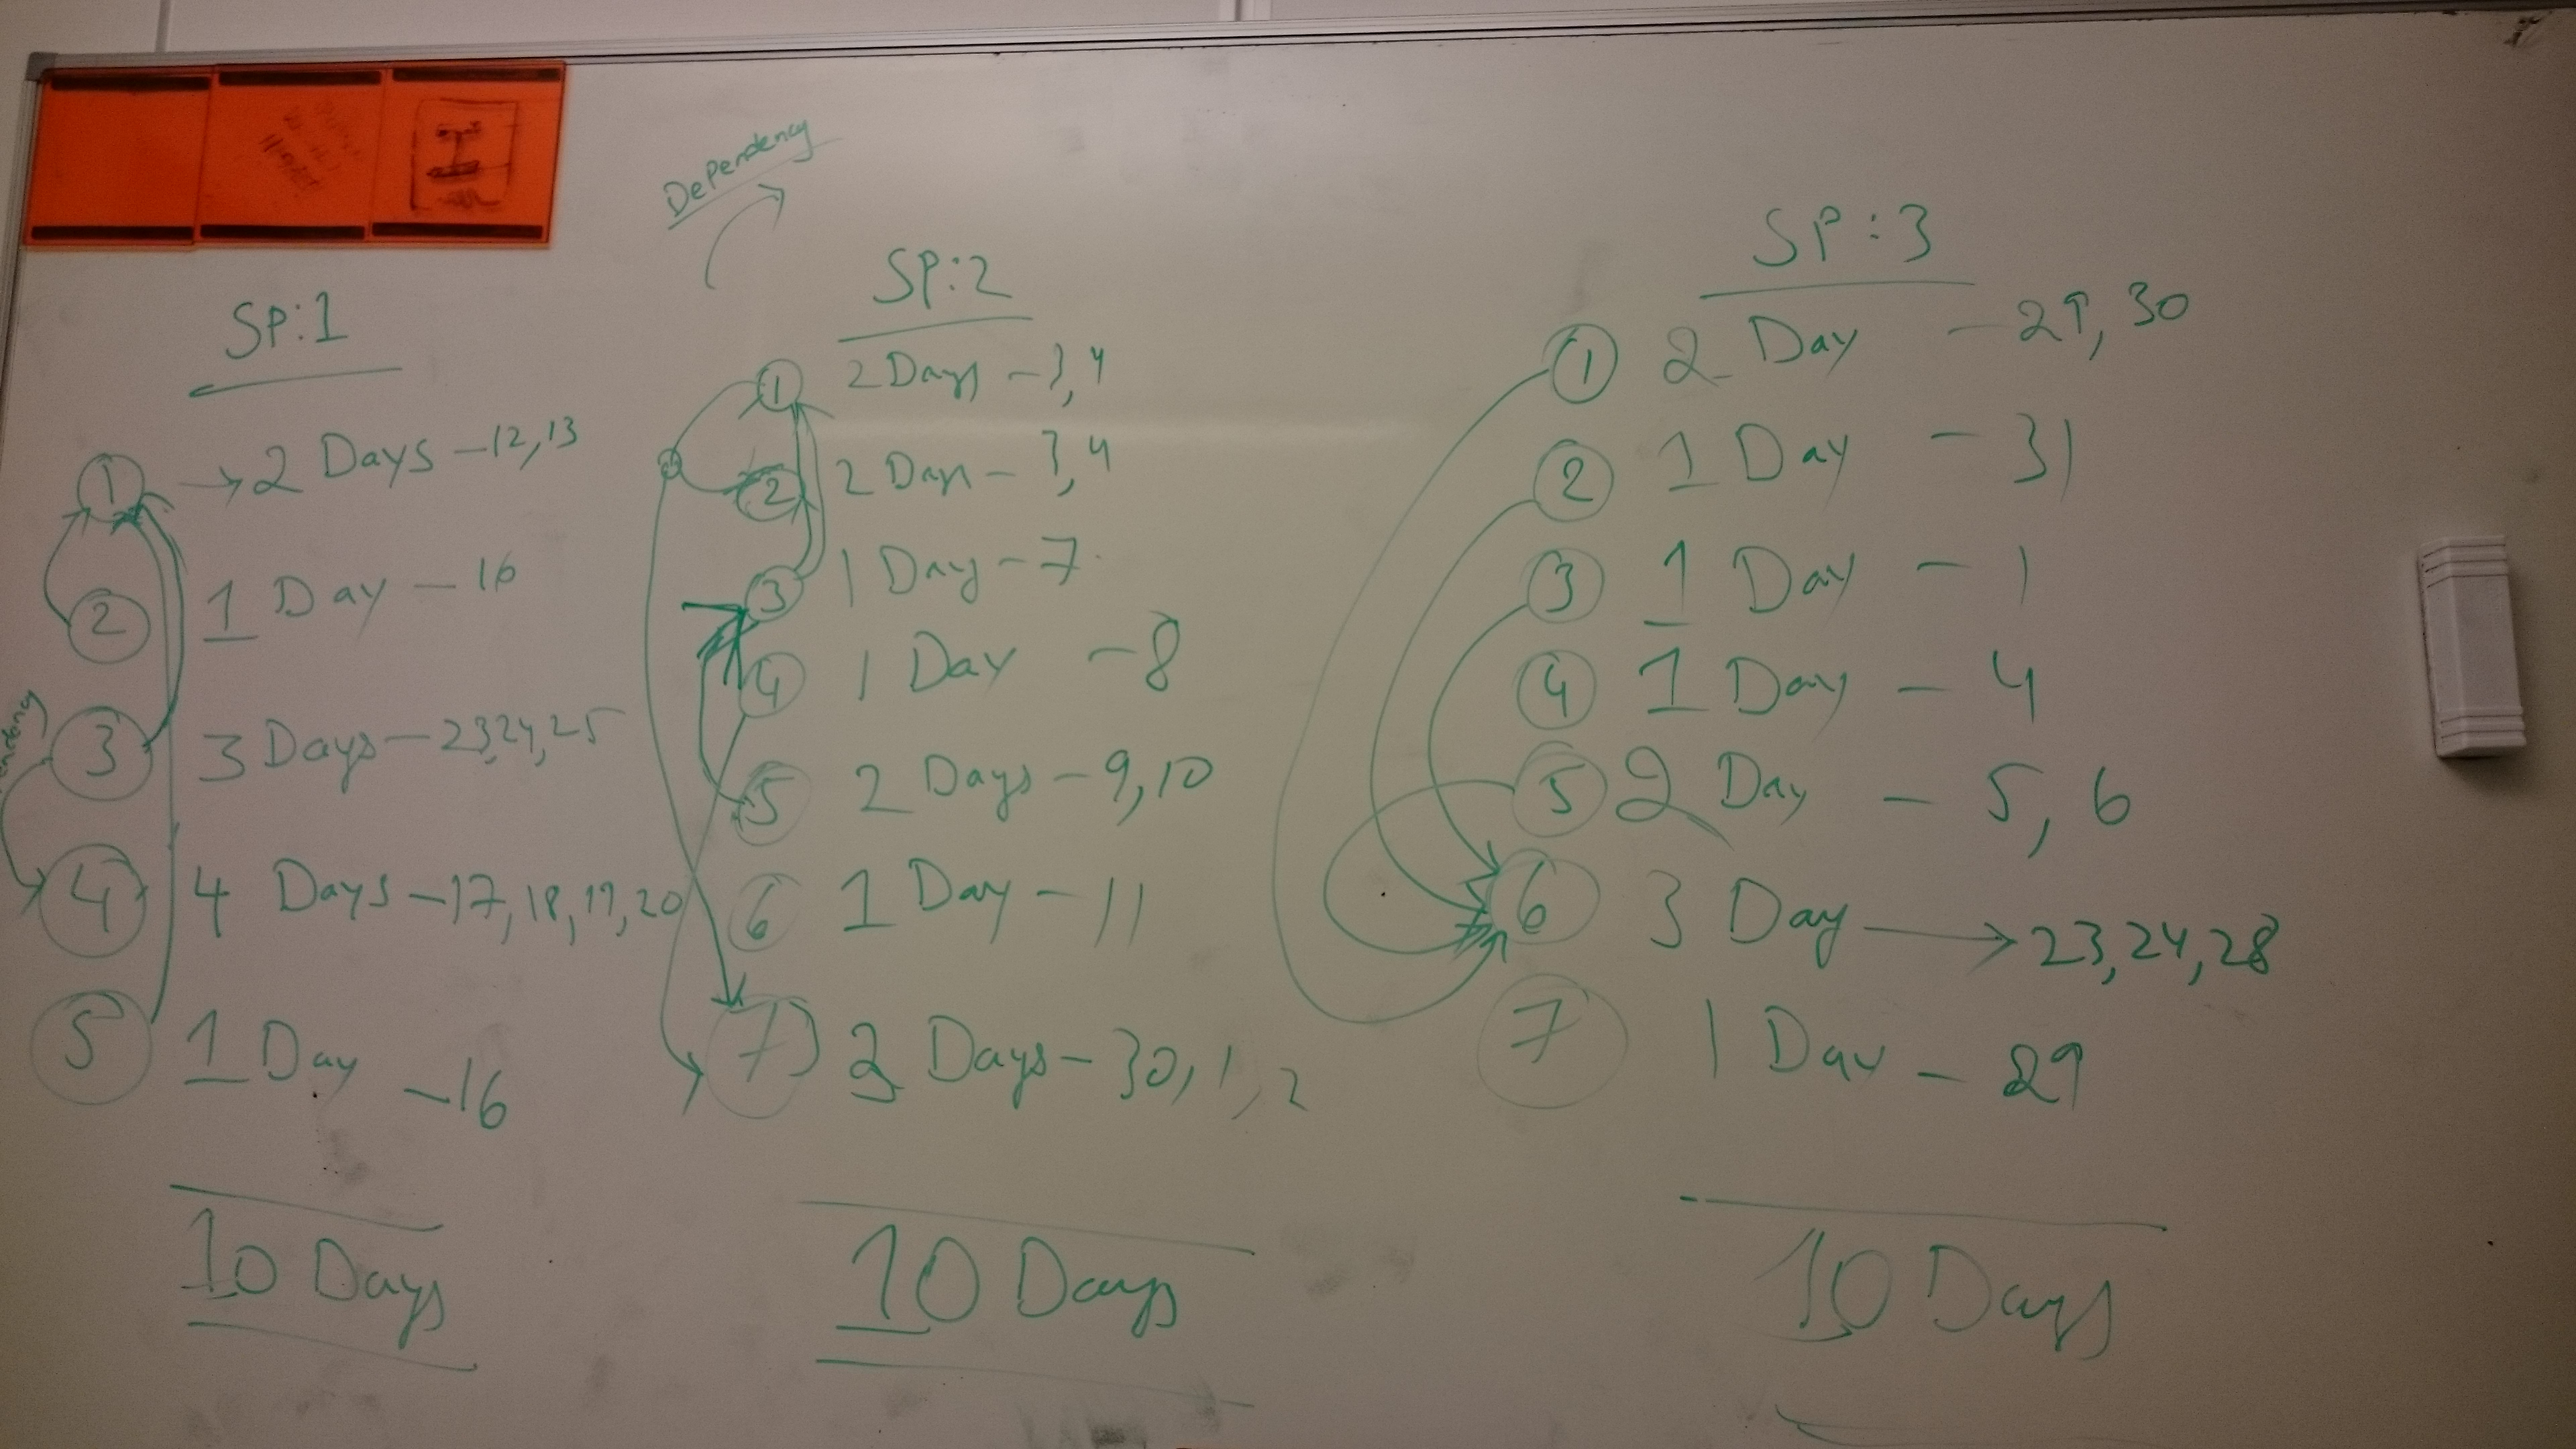 Dependency
SP:1
① → 2 Days - 12,13
② 1 Day - 16
③ 3 Days - 23,24,25
④ 4 Days - 17,18,19,20
⑤ 1 Day - 16
10 Days
SP:2
① 2 Days - 3,4
② 2 Days - 3,4
③ 1 Day - 7
④ 1 Day - 8
⑤ 2 Days - 9,10
⑥ 1 Day - 11
⑦ 3 Days - 30,1,2
10 Days
SP:3
① 2 Day - 29,30
② 1 Day - 31
③ 1 Day - 1
④ 1 Day - 4
⑤ 2 Day - 5,6
⑥ 3 Day → 23,24,28
⑦ 1 Day - 29
10 Days